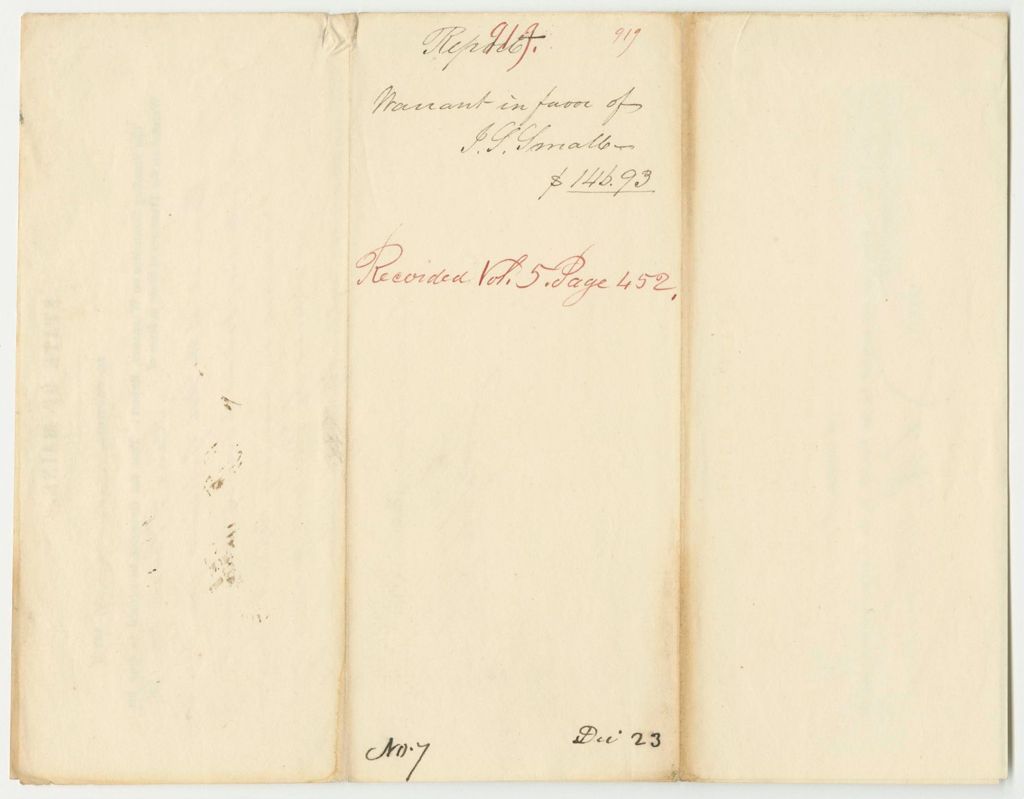 Report 919. 919
Warrant in favor of
J. S. Small
$ 146.93
Recorded Vol. 5. Page 452.
No. 7 Dec 23